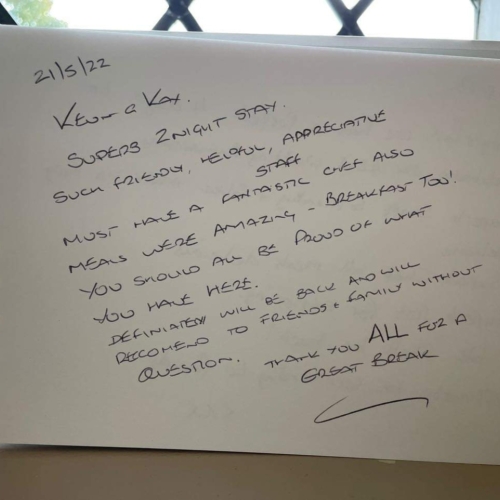 21/5/22
KEVIN & KAY.
SUPERB 2 NIGHT STAY.
SUCH FRIENDLY, HELPFUL, APPRECIATIVE
STAFF
MUST HAVE A FANTASTIC CHEF ALSO
MEALS WERE AMAZING - BREAKFAST TOO!
YOU SHOULD ALL BE PROUD OF WHAT
YOU HAVE HERE.
DEFINIATELY WILL BE BACK AND WILL
RECOMEND TO FRIENDS & FAMILY WITHOUT
QUESTION. THANK YOU ALL FOR A
GREAT BREAK